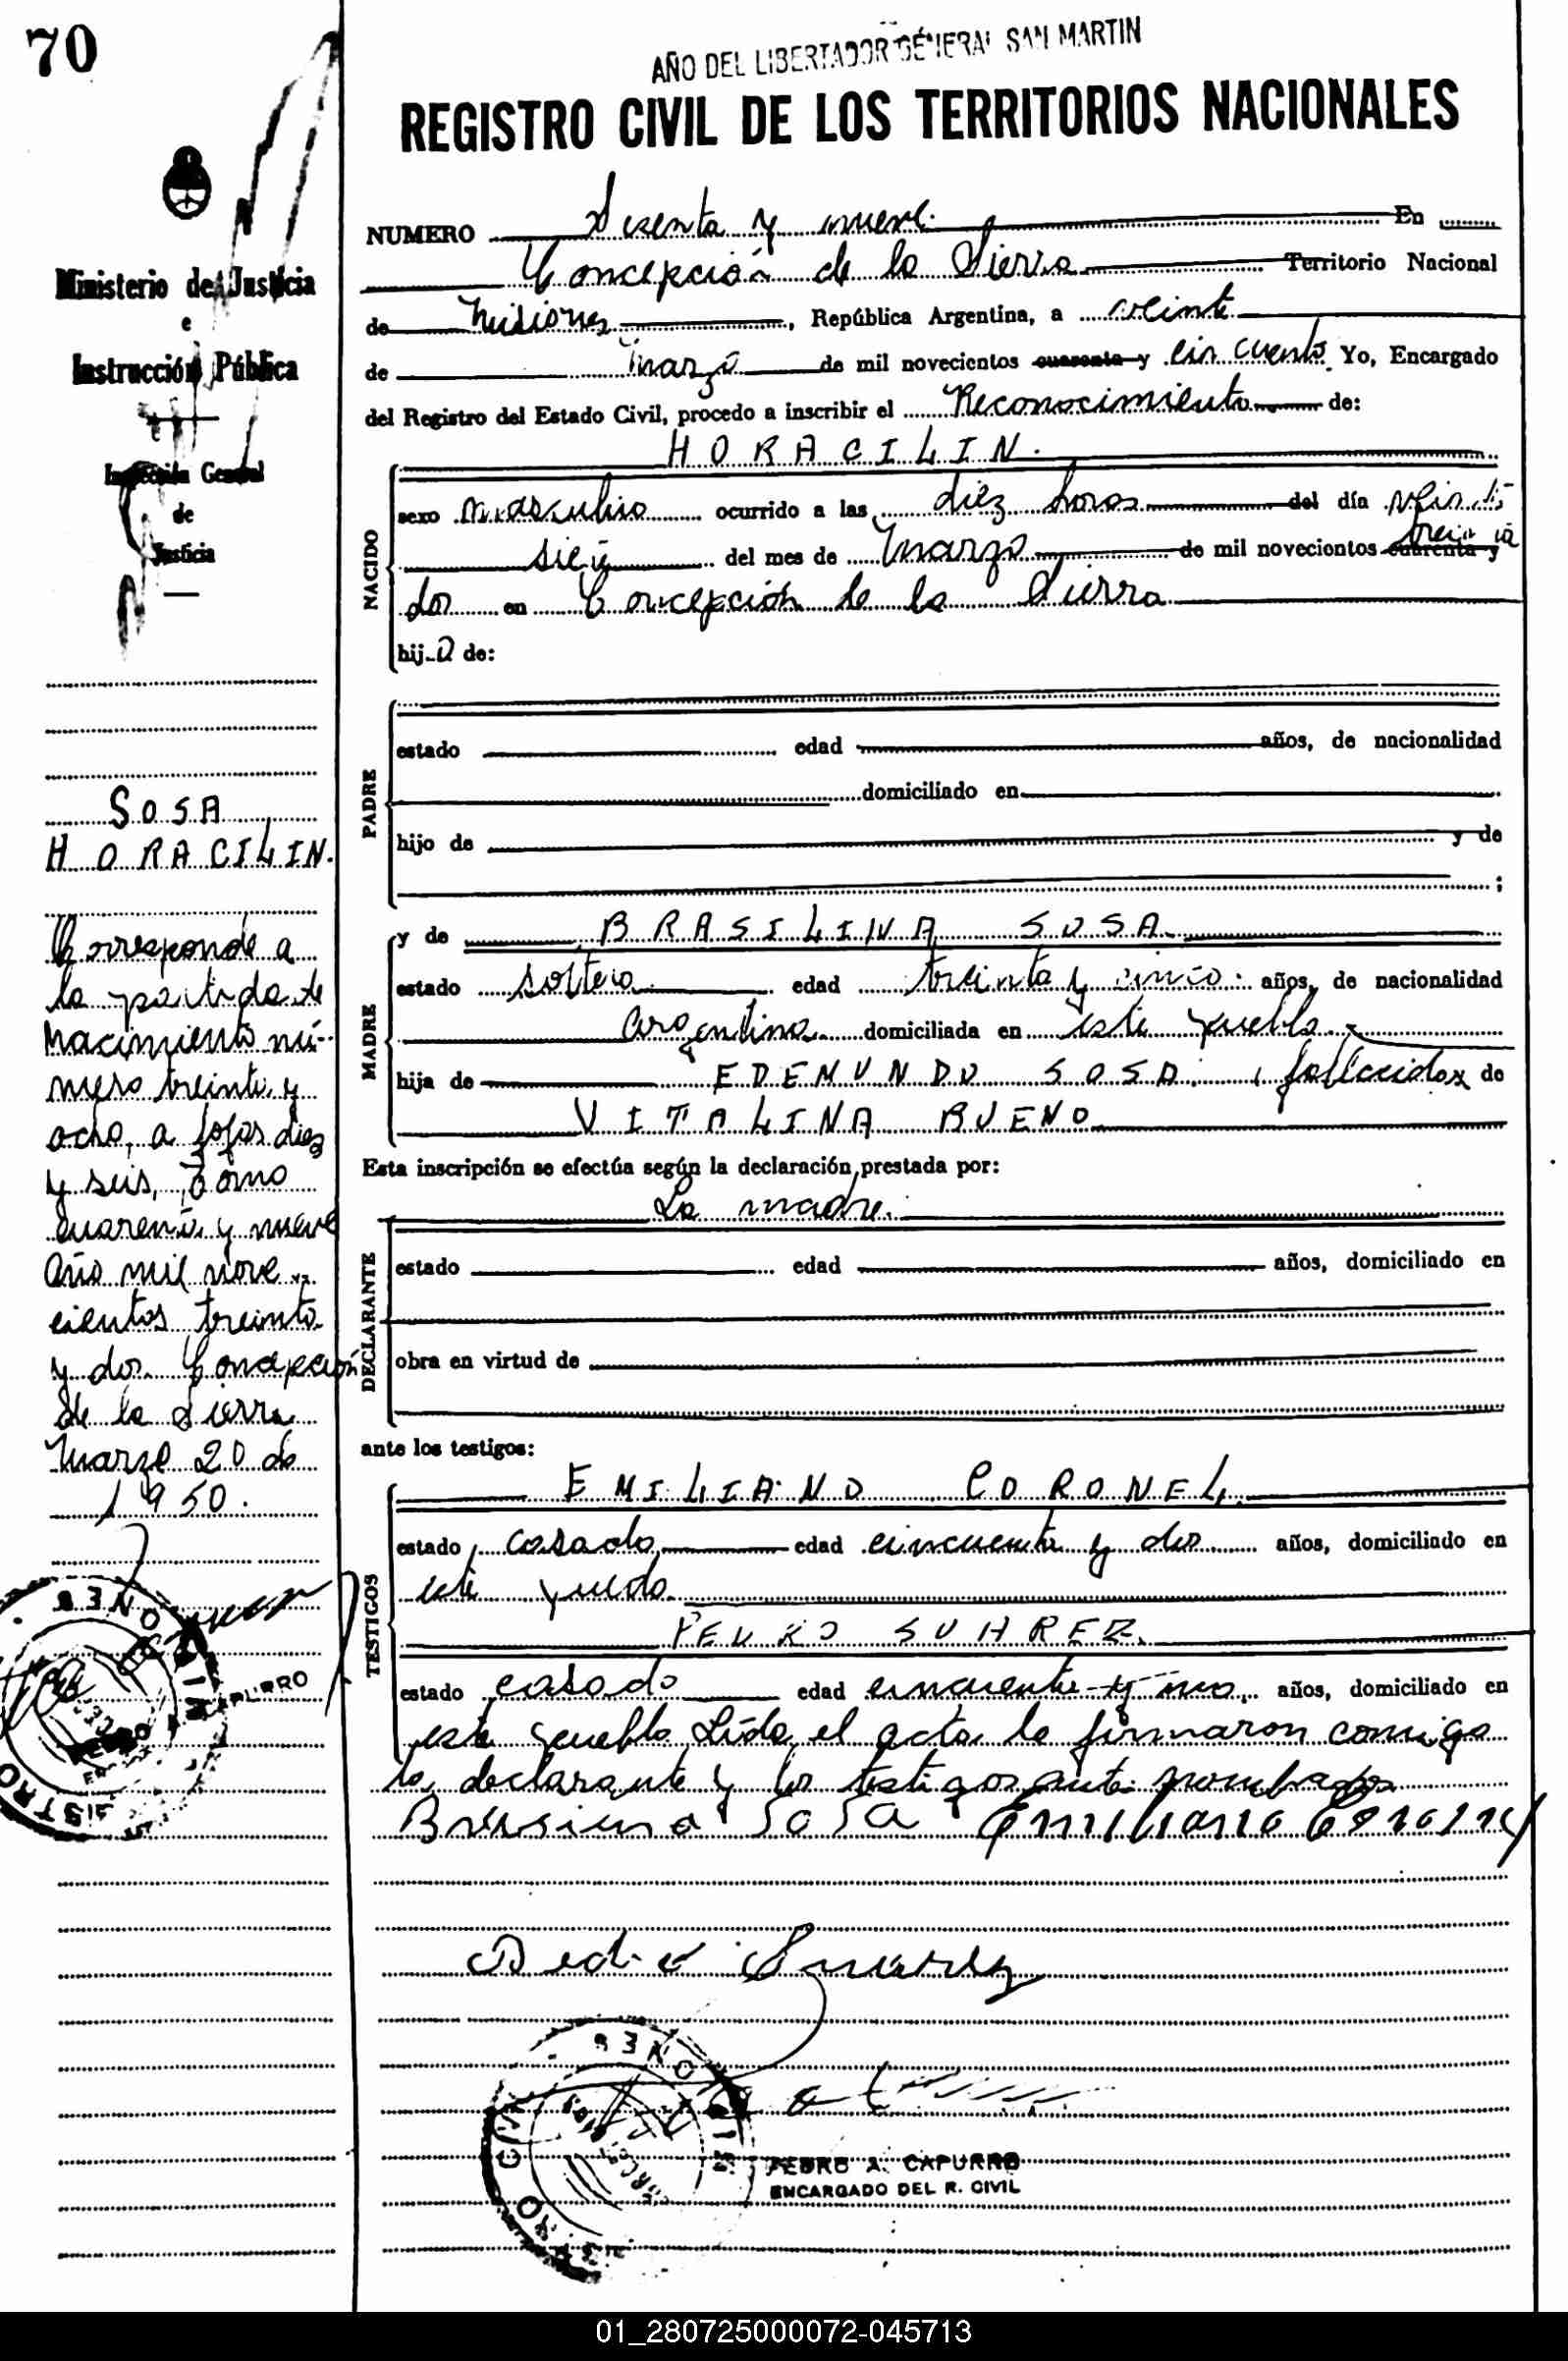 70
AÑO DEL LIBERTADOR GENERAL SAN MARTIN
REGISTRO CIVIL DE LOS TERRITORIOS NACIONALES
Ministerio de Justicia
e
Instrucción Pública
Inspección General
de
Justicia
SOSA
HORACILIN.
Corresponde a
la partida de
nacimiento nú-
mero treinta y
ocho, a fojas diez
y seis, Tomo
cuarenta y nueve
año mil nove-
cientos treinta
y dos. Concepción
de la Sierra
Marzo 20 de
1950.
NUMERO Sesenta y nueve. En
Concepción de la Sierra Territorio Nacional
de Misiones, República Argentina, a veinte
de marzo de mil novecientos cuarenta y cincuenta. Yo, Encargado
del Registro del Estado Civil, procedo a inscribir el Reconocimiento de:
HORACILIN.
NACIDO
sexo masculino ocurrido a las diez horas del día veinti
siete del mes de marzo de mil novecientos cuarenta y treinta
dos en Concepción de la Sierra
hijo de:
PADRE
estado edad años, de nacionalidad
domiciliado en
hijo de y de
;
MADRE
y de BRASILINA SOSA
estado soltera edad treinta y cinco. años, de nacionalidad
argentina domiciliada en este pueblo.
hija de EDEMUNDO SOSA, fallecido y de
VITALINA BUENO
Esta inscripción se efectúa según la declaración prestada por:
DECLARANTE
La madre.
estado edad años, domiciliado en
obra en virtud de
ante los testigos:
TESTIGOS
EMILIANO CORONEL
estado casado edad cincuenta y dos años, domiciliado en
este pueblo.
PEDRO SUAREZ.
estado casado edad cincuenta y uno años, domiciliado en
este pueblo. Leída el acta la firmaron conmigo
la declarante y los testigos ante nombrados
Brasilina Sosa Emiliano Coronel
Pedro Suarez
PEDRO A. CAPURRO
ENCARGADO DEL R. CIVIL
01_280725000072-045713